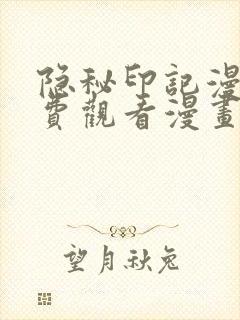 隐秘印記漫
費觀看漫畫
望月秋兔